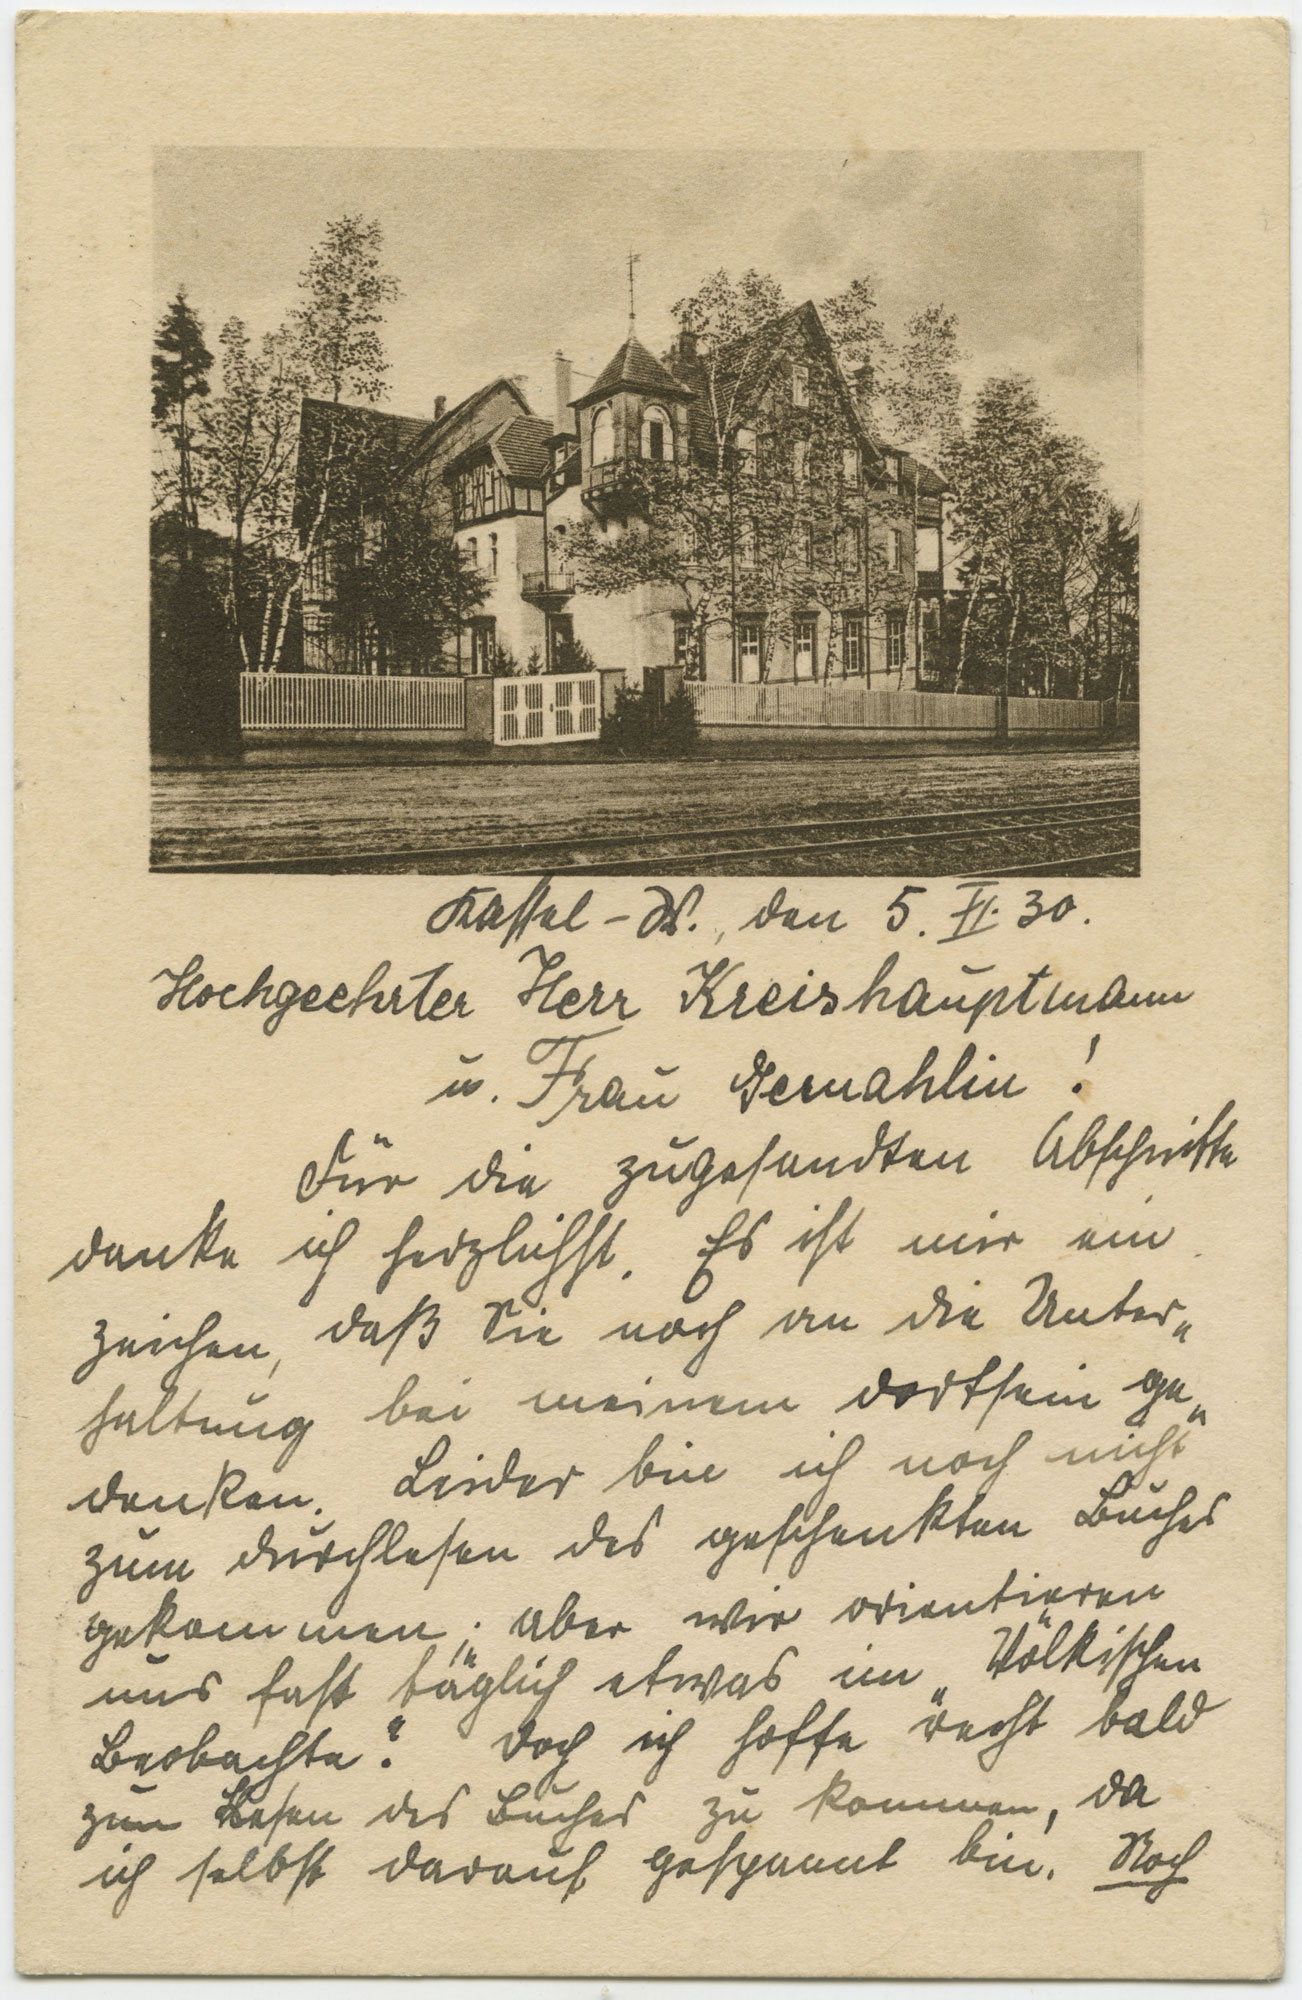 Kassel-W., den 5. II. 30.
Hochgeehrter Herr Kreishauptmann
u. Frau Gemahlin!
Für die zugesandten Abschnitte
danke ich herzlichst. Es ist mir ein
zeichen, daß Sie noch an die Unter„
haltung bei meinem dortsein ge„
denken. Leider bin ich noch nicht
zum durchlesen des geschenkten Buches
gekommen; aber wir orientieren
uns fast täglich etwas im „Völkischen
Beobachte“. Doch ich hoffe recht bald
zum Lesen des Buches zu kommen, da
ich selbst darauf gespannt bin. Noch